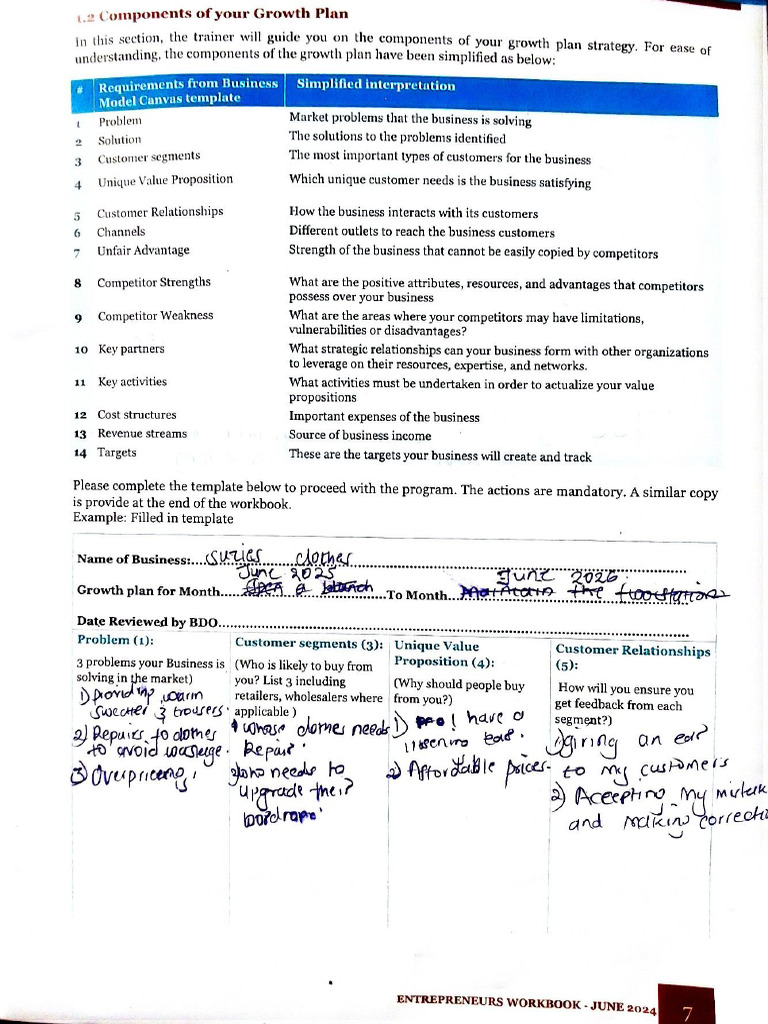 1.2 Components of your Growth Plan
In this section, the trainer will guide you on the components of your growth plan strategy. For ease of
understanding, the components of the growth plan have been simplified as below:
# Requirements from Business Model Canvas template Simplified interpretation
1 Problem Market problems that the business is solving
2 Solution The solutions to the problems identified
3 Customer segments The most important types of customers for the business
4 Unique Value Proposition Which unique customer needs is the business satisfying
5 Customer Relationships How the business interacts with its customers
6 Channels Different outlets to reach the business customers
7 Unfair Advantage Strength of the business that cannot be easily copied by competitors
8 Competitor Strengths What are the positive attributes, resources, and advantages that competitors
possess over your business
9 Competitor Weakness What are the areas where your competitors may have limitations,
vulnerabilities or disadvantages?
10 Key partners What strategic relationships can your business form with other organizations
to leverage on their resources, expertise, and networks.
11 Key activities What activities must be undertaken in order to actualize your value
propositions
12 Cost structures Important expenses of the business
13 Revenue streams Source of business income
14 Targets These are the targets your business will create and track
Please complete the template below to proceed with the program. The actions are mandatory. A similar copy
is provide at the end of the workbook.
Example: Filled in template
Name of Business:...Suzies clothes
June 2025 June 2026
Growth plan for Month....Open a branch...To Month...Maintain the
Date Reviewed by BDO...
Problem (1):
3 problems your Business is
solving in the market)
1) providing warm
Sweater & trousers.
2) Repairs to clothes
to avoid
3) Overpriceing.
Customer segments (3):
(Who is likely to buy from
you? List 3 including
retailers, wholesalers where
applicable )
1 whose clothes needs
Repair.
2) who needs to
upgrade their
Unique Value
Proposition (4):
(Why should people buy
from you?)
1) I have a
listening ear.
2) Affordable prices.
Customer Relationships
(5):
How will you ensure you
get feedback from each
segment?)
1) giving an ear
to my customers
2) Accepting my mistak
and making correcti
ENTREPRENEURS WORKBOOK - JUNE 2024 7